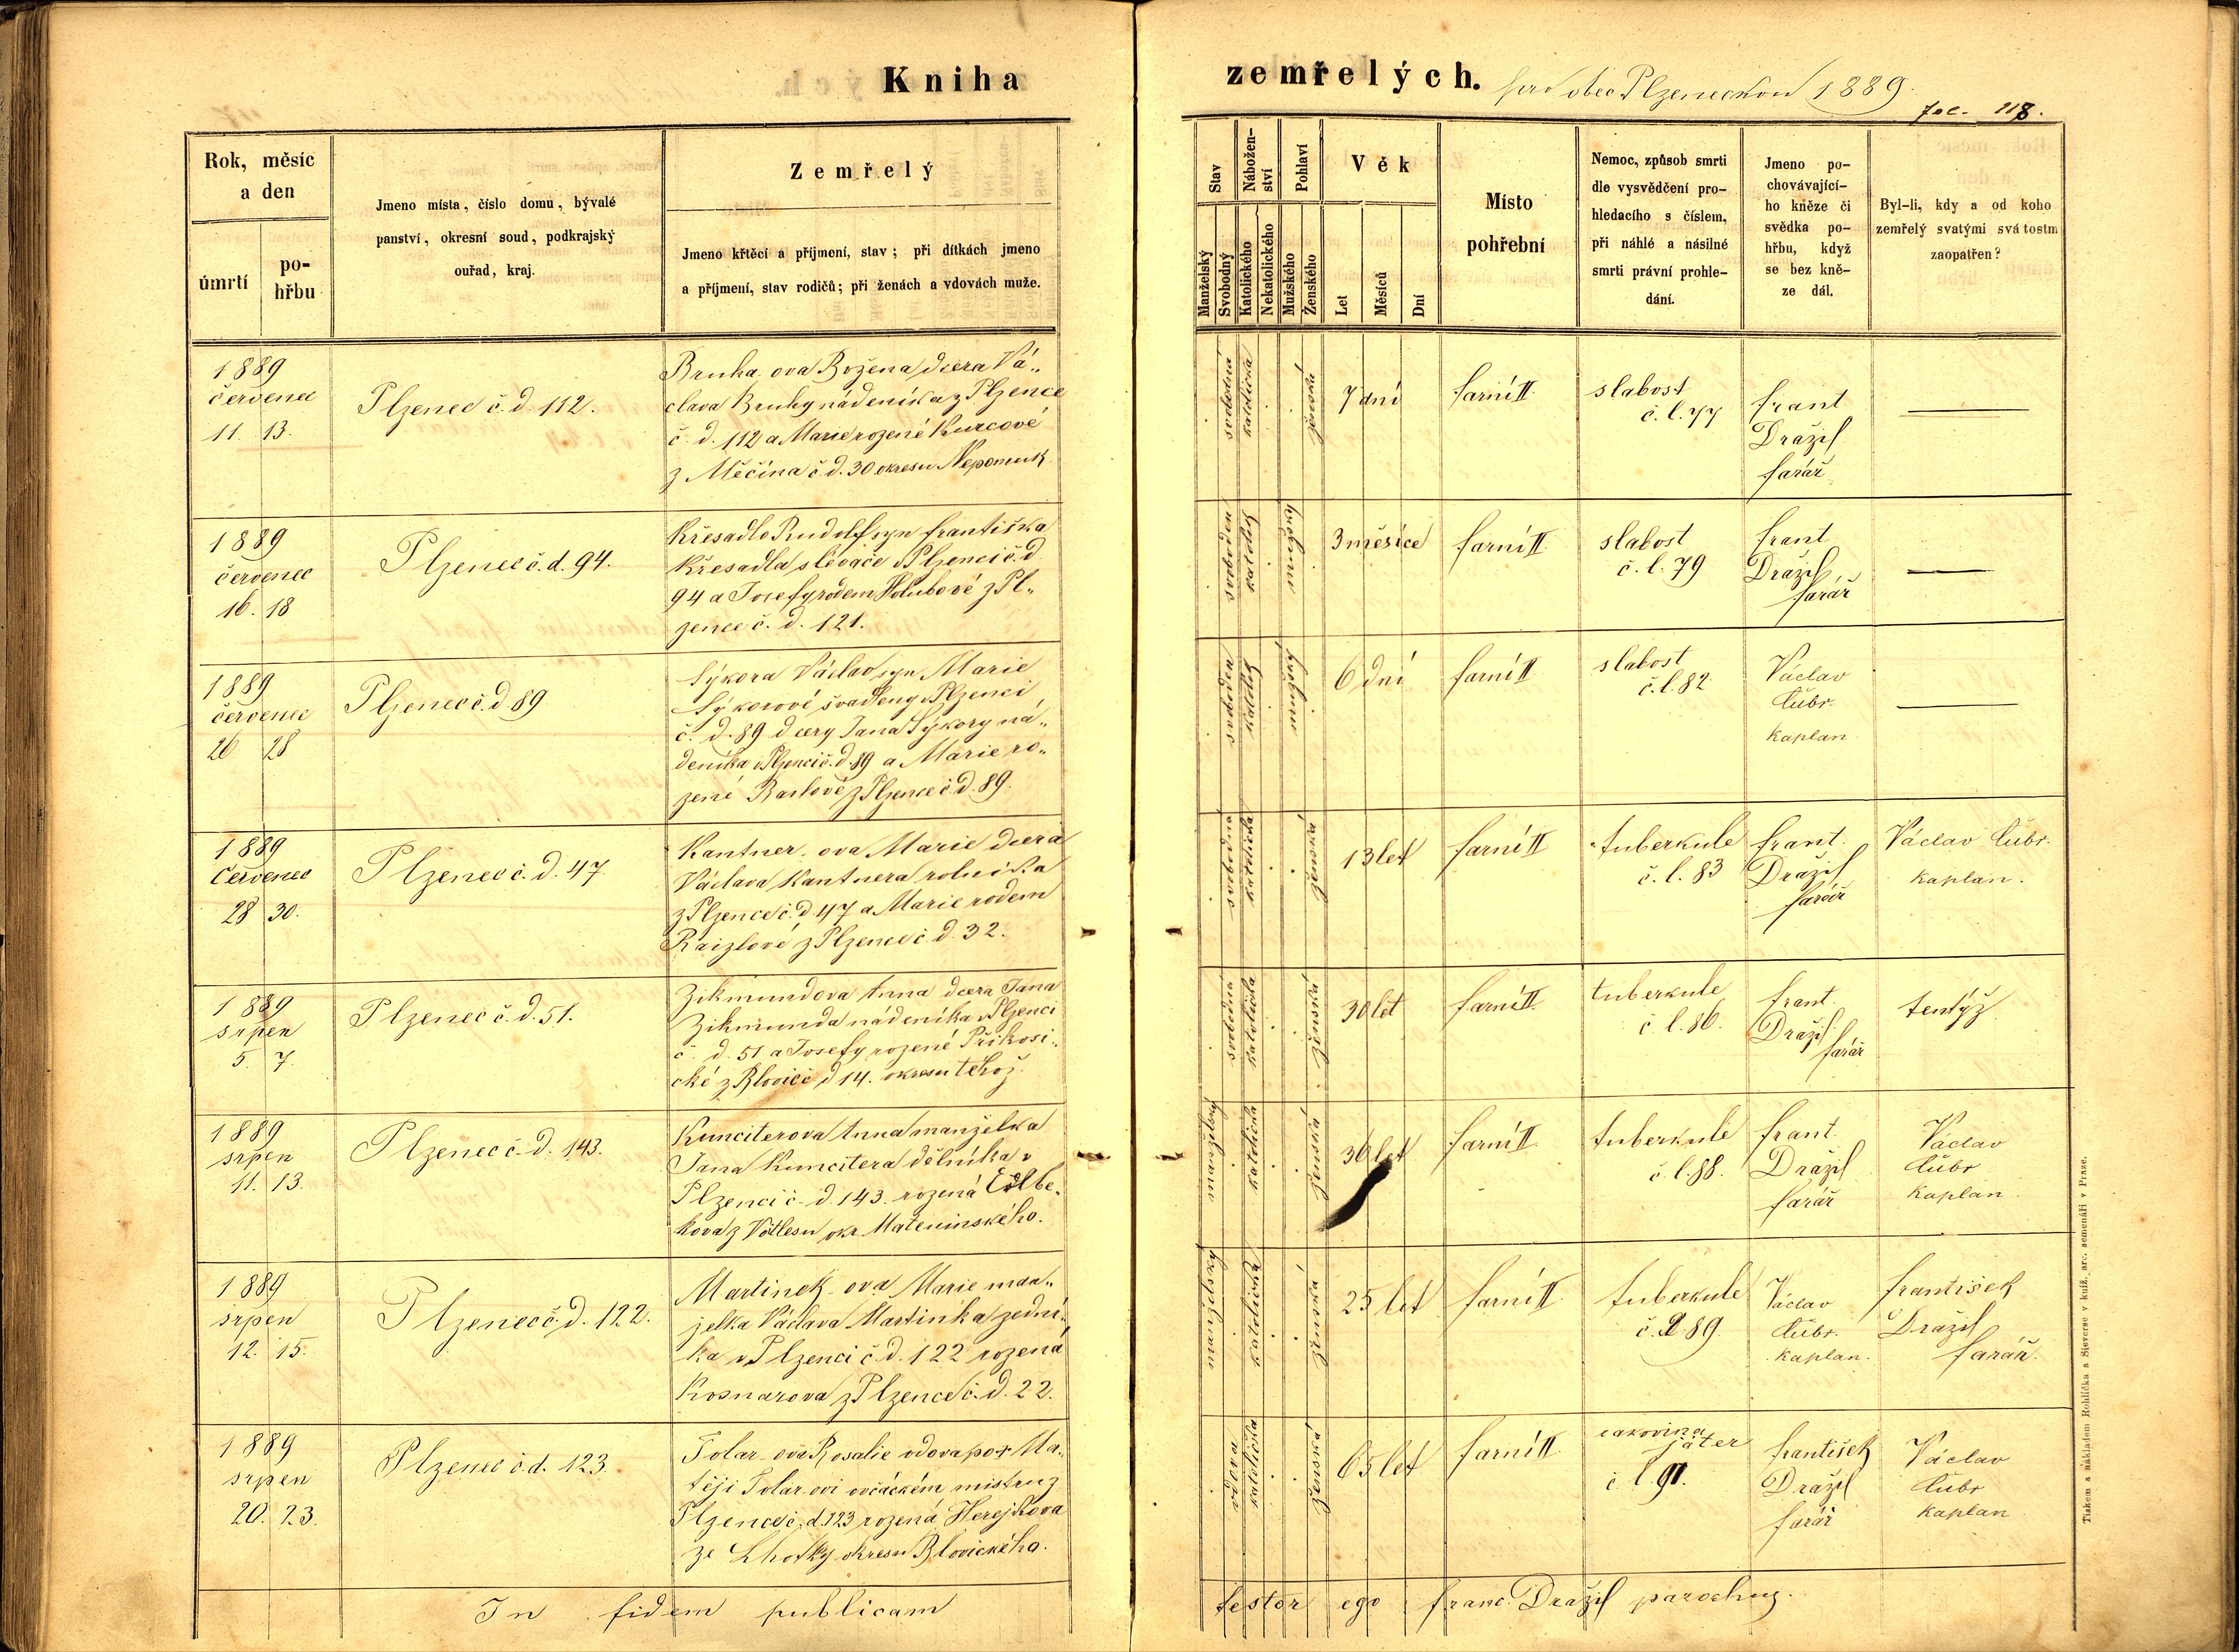 Kniha
zemřelých.
pro obec Plzeneckou 1889.
fol. 118.
Rok, měsíc
a den
úmrtí
po-
hřbu
Jmeno místa, číslo domu, bývalé
panství, okresní soud, podkrajský
ouřad, kraj.
Zemřelý
Jmeno křtěcí a příjmení, stav; při dítkách jmeno
a příjmení, stav rodičů; při ženách a vdovách muže.
Stav
Manželský
Svobodný
Nábožen-
ství
Katolického
Nekatolického
Pohlaví
Mužského
Ženského
Věk
Let
Měsíců
Dní
Místo
pohřební
Nemoc, způsob smrti
dle vysvědčení pro-
hledacího s číslem,
při náhlé a násilné
smrti právní prohle-
dání.
Jmeno po-
chovávající-
ho kněze či
svědka po-
hřbu, když
se bez kně-
ze dál.
Byl-li, kdy a od koho
zemřelý svatými svátostm
zaopatřen?
1889
červenec
11. 13.
Plzenec č. d. 112.
Bruha-ova Božena dcera Vá„
clava Bruhy nádeníka z Plzence
č. d. 112 a Marie rozené Kurcové
z Měčína č. d. 30 okresu Nepomuk.
svobodná
katolička
ženská
7 dní
farní II.
slabost
č. l. 77
Frant
Dražil
farář
1889
červenec
16. 18
Plzenec č. d. 94.
Křesadlo Rudolf syn Františka
Křesadla slévače v Plzenci č. d.
94 a Josefy rodem Holubové z Pl„
zence č. d. 121.
svoboden
katolík
mužský
3 měsíce
farní II.
slabost
č. l. 79
Frant
Dražil
farář
1889
červenec
26 28
Plzenec č. d 89
Sýkora Václav syn Marie
Sýkorové švadleny v Plzenci
č. d. 89 dcery Jana Sýkory ná„
deníka v Plzenci č. d. 89 a Marie ro„
zené z Plzence č. d. 89.
svoboden
katolík
mužský
6 dní
farní II
slabost
č. l. 82
Václav
Čubr.
kaplan
1889
Červenec
28 30.
Plzenec č. d. 47
Kantner-ova Marie dcera
Václava Kantnera rolníka
z Plzence č. d. 47 a Marie rodem
Raizlové z Plzence č. d. 32.
svobodná
katolička
ženská
13 let
farní II
tuberkule
č. l. 83
Frant.
Dražil
farář
Václav Čubr.
kaplan.
1889
srpen
5. 7.
Plzenec č. d. 51.
Zikmundova Anna dcera Jana
Zikmunda nádeníka v Plzenci
č. d. 51 a Josefy rozené Přikosi„
cké z Blovic č d 14. okresu téhož.
svobodná
katolička
ženská
30 let
farní II.
tuberkule
č. l. 86.
Frant.
Dražil
farář
tentýž
1889
srpen
11. 13.
Plzenec č. d. 143.
Kunciterova Anna manželka
Jana Kuncitera dělníka v
Plzenci č. d. 143. rozená
kova z okr.
manželský
katolička
ženská
36 let
farní II
tuberkule
č. l. 88.
Frant.
Dražil
farář
Václav
Čubr
kaplan
1889
srpen
12. 15.
Plzenec č. d. 122.
Martinek-ova Marie man„
želka Václava Martínka zední„
ka v Plzenci č. d. 122 rozená
Kosnarova z Plzence č. d. 22.
manželský
katolička
ženská
25 let
farní II
tuberkule
č. l. 89.
Václav
Čubr.
kaplan.
František
Dražil
farář.
1889
srpen
20. 23.
Plzenec č. d. 123.
Tolar-ova Rosalie vdova po † Ma„
těji Tolar-ovi ovčáckém mistru z
Plzence č. d. 123 rozená Herejkova
ze Lhotky okresu Blovického.
vdova
katolička
ženská
65 let
farní II
rakovina
jater
č l. 91.
František
Dražil
farář
Václav
Čubr
kaplan
In fidem publicam
testor ego Franc. Dražil parochus.
Tiskem a nákladem Rohlíčka a Sieverse v kníž. arc. semenáři v Praze.